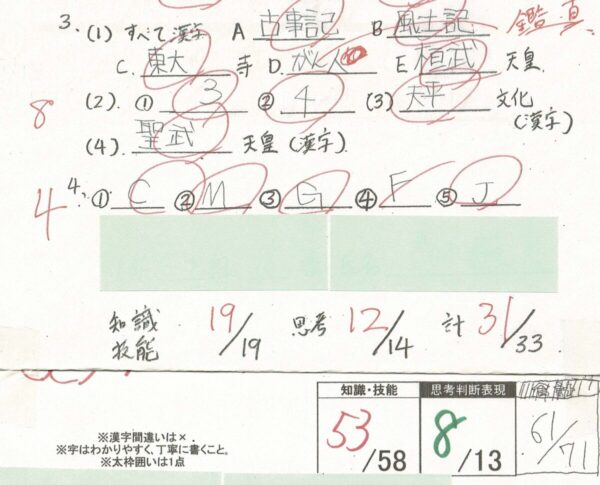 3. (1) すべて漢字 A 古事記 B 風土記 鑑真
C. 東大 寺 D. がく人 E 桓武 天皇
(2). ① 3 ② 4 (3) 天平 文化(漢字)
8
(4). 聖武 天皇 (漢字)
4. ① C ② M ③ G ④ F ⑤ J
4
知識技能 19/19 思考 12/14 計 31/33
知識・技能 思考判断表現
※漢字間違いは×.
※字はわかりやすく、丁寧に書くこと。
※太枠囲いは1点
53/58 8/13 61/71